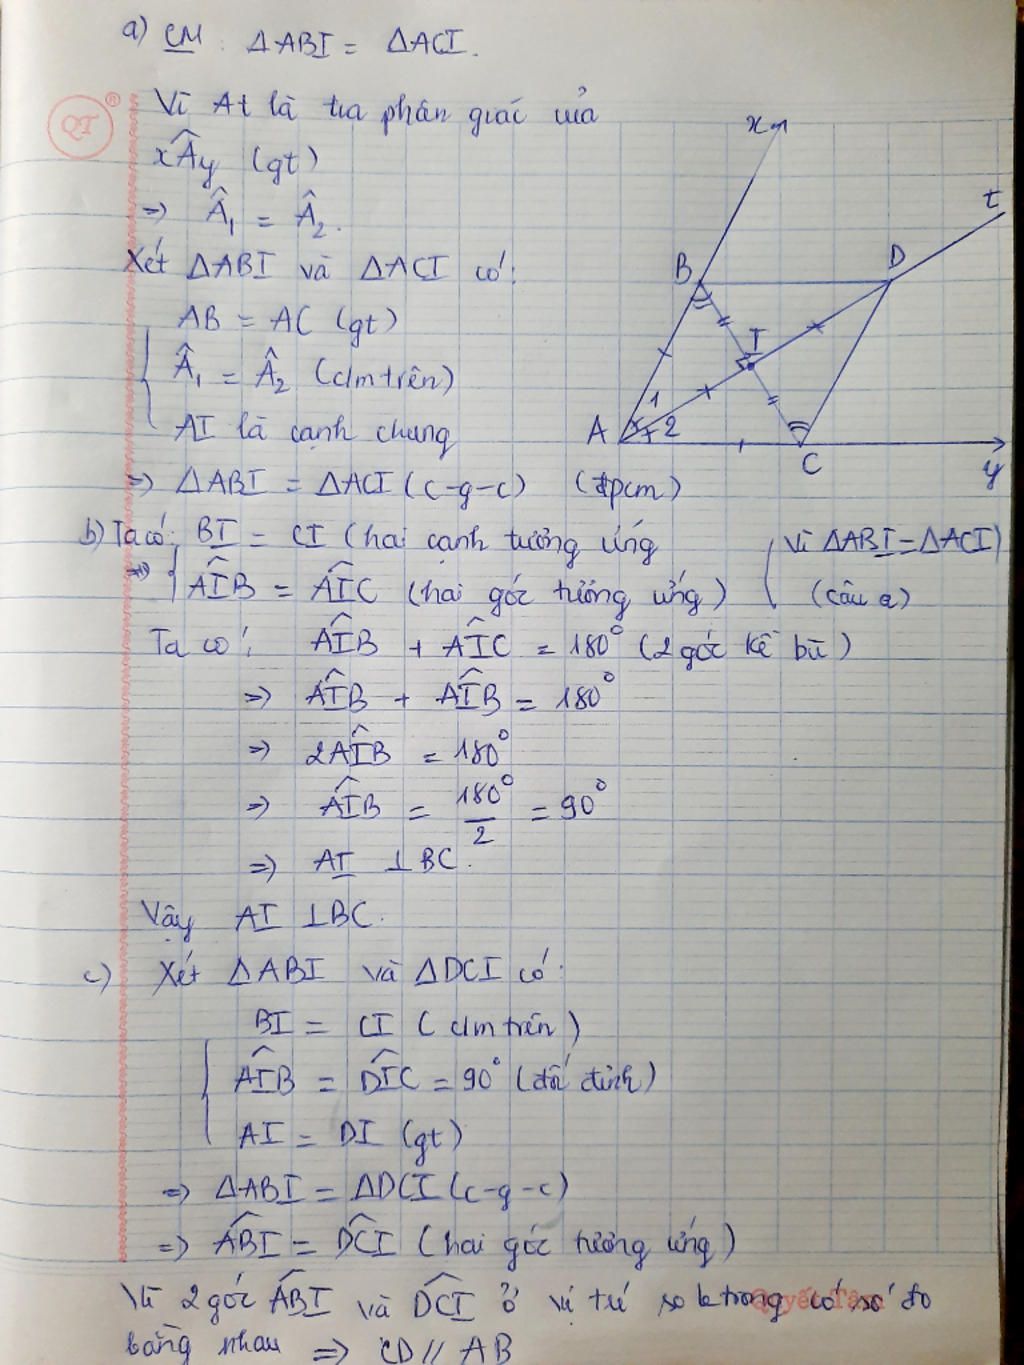 a) CM : ΔABI = ΔACI.
QT
Vì At là tia phân giác của
xÂy (gt)
=> Â₁ = Â₂.
Xét ΔABI và ΔACI có:
AB = AC (gt)
Â₁ = Â₂ (cm trên)
AI là cạnh chung
=> ΔABI = ΔACI (c-g-c) (đpcm)
x
t
B
D
I
1
A
2
C
y
b) Ta có: BI = CI (hai cạnh tương ứng
Vì ΔABI = ΔACI)
=> AÎB = AÎC (hai góc tương ứng)
(câu a)
Ta có: AÎB + AÎC = 180° (2 góc kề bù)
=> AÎB + AÎB = 180°
=> 2AÎB = 180°
=> AÎB = 180°/2 = 90°
=> AI ⊥ BC.
Vậy AI ⊥ BC.
c) Xét ΔABI và ΔDCI có:
BI = CI (cm trên)
AÎB = DÎC = 90° (đối đỉnh)
AI = DI (gt)
=> ΔABI = ΔDCI (c-g-c)
=> AB̂I = DĈI (hai góc tương ứng)
Vì 2 góc AB̂I và DĈI ở vị trí so le trong có số đo
Quyết Tâm
bằng nhau => CD // AB